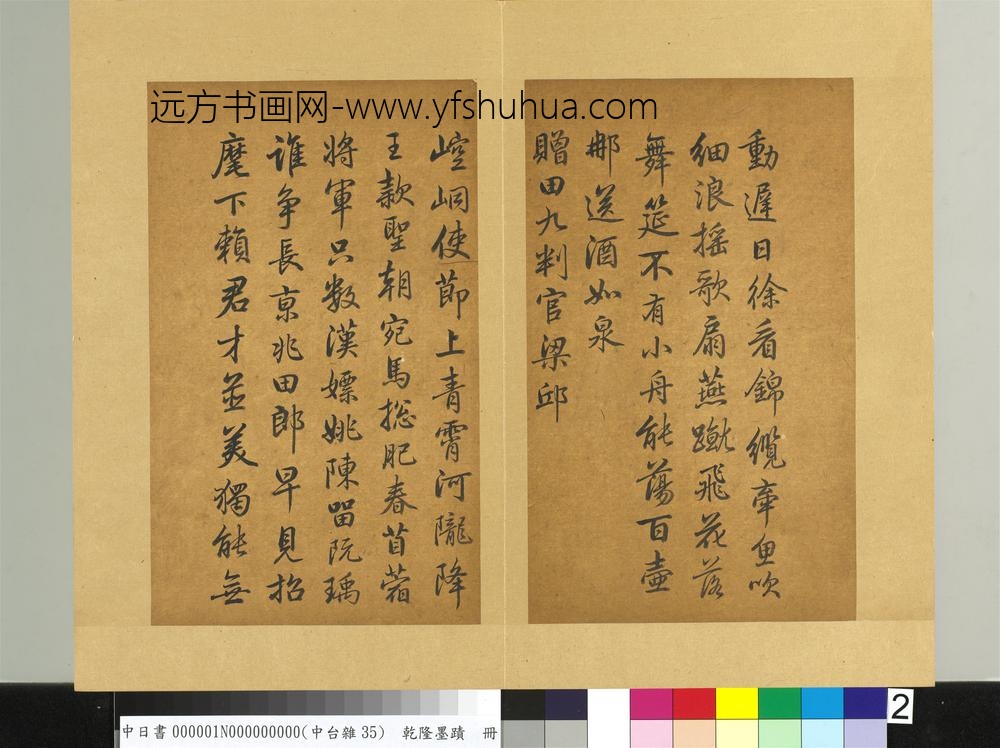 远方书画网-www.yfshuhua.com
動遲日徐看錦纜牽魚吹
細浪揺歌扇燕蹴飛花落
舞筵不有小舟能蕩百壺
那送酒如泉
贈田九判官梁邱
崆峒使節上青霄河隴降
王款聖朝宛馬総肥春苜蓿
將軍只數漢嫖姚陳留阮瑀
誰爭長京兆田郎早見招
麾下賴君才並美獨能無
中日書 000001N000000000(中台雜 35) 乾隆墨蹟 冊
2